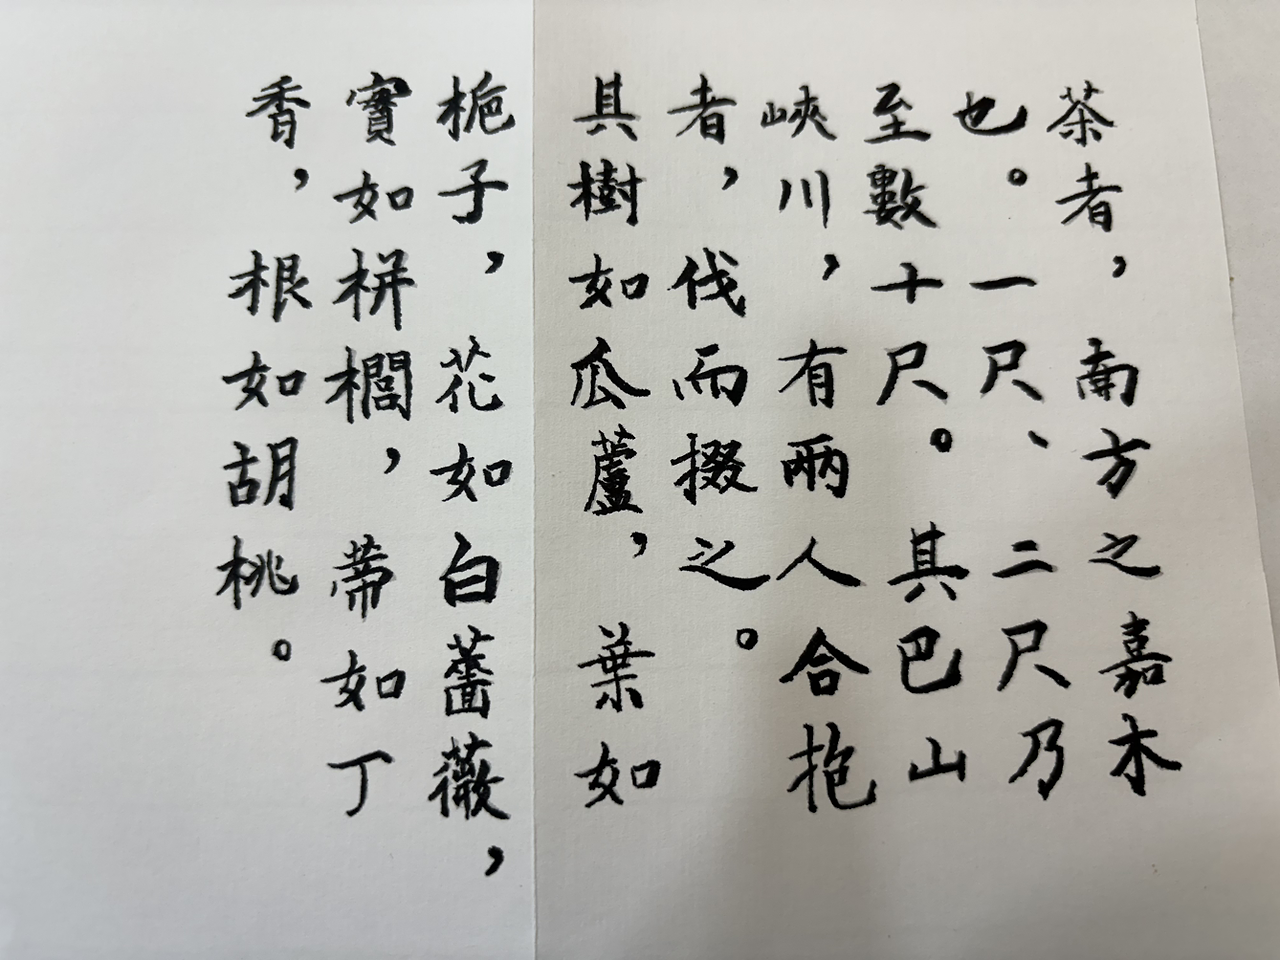 茶者，南方之嘉木
也。一尺、二尺乃
至數十尺。其巴山
峽川，有兩人合抱
者，伐而掇之。
具樹如瓜蘆，葉如
梔子，花如白薔薇，
實如栟櫚，蒂如丁
香，根如胡桃。